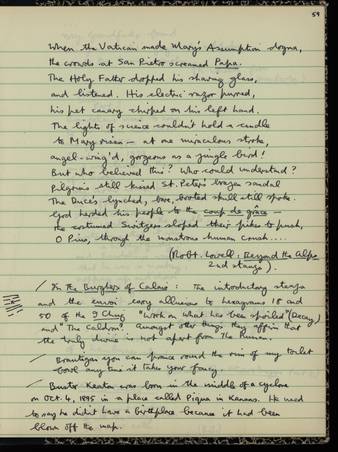 59
When the Vatican made Mary's Assumption dogma,
the crowds at San Pietro screamed Papa.
The Holy Father dropped his shaving glass,
and listened. His electric razor purred,
his pet canary chirped on his left hand.
The lights of science couldn't hold a candle
to Mary risen — at one miraculous stroke,
angel-wing'd, gorgeous as a jungle bird!
But who believed this? Who could understand?
Pilgrims still kissed St. Peter's brazen sandal
The Duce's lynched, bare, booted skull still spoke.
God herded his people to the coup de grâce —
the costumed Switzers sloped their pikes to push,
O Pius, through the monstrous human crush....
(Robt. Lowell: Beyond the Alps
2nd stanza).
/ In The Burghers of Calais: The introductory stanza
and the envoi carry allusions to hexagrams 18 and
50 of the I Ching "Work on what has been spoiled" (Decay)
and "The Caldron". Amongst other things they affirm that
the truly divine is not apart from The Human.
/ Brautigan you can prance round the rim of my toilet
bowl any time it takes your fancy.
/ Buster Keaton was born in the middle of a cyclone
on Oct. 4, 1895 in a place called Piqua in Kansas. He used
to say he didn't have a birthplace because it had been
blown off the map.